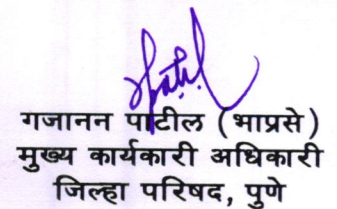 Patil
गजानन पाटील (भाप्रसे)
मुख्य कार्यकारी अधिकारी
जिल्हा परिषद, पुणे